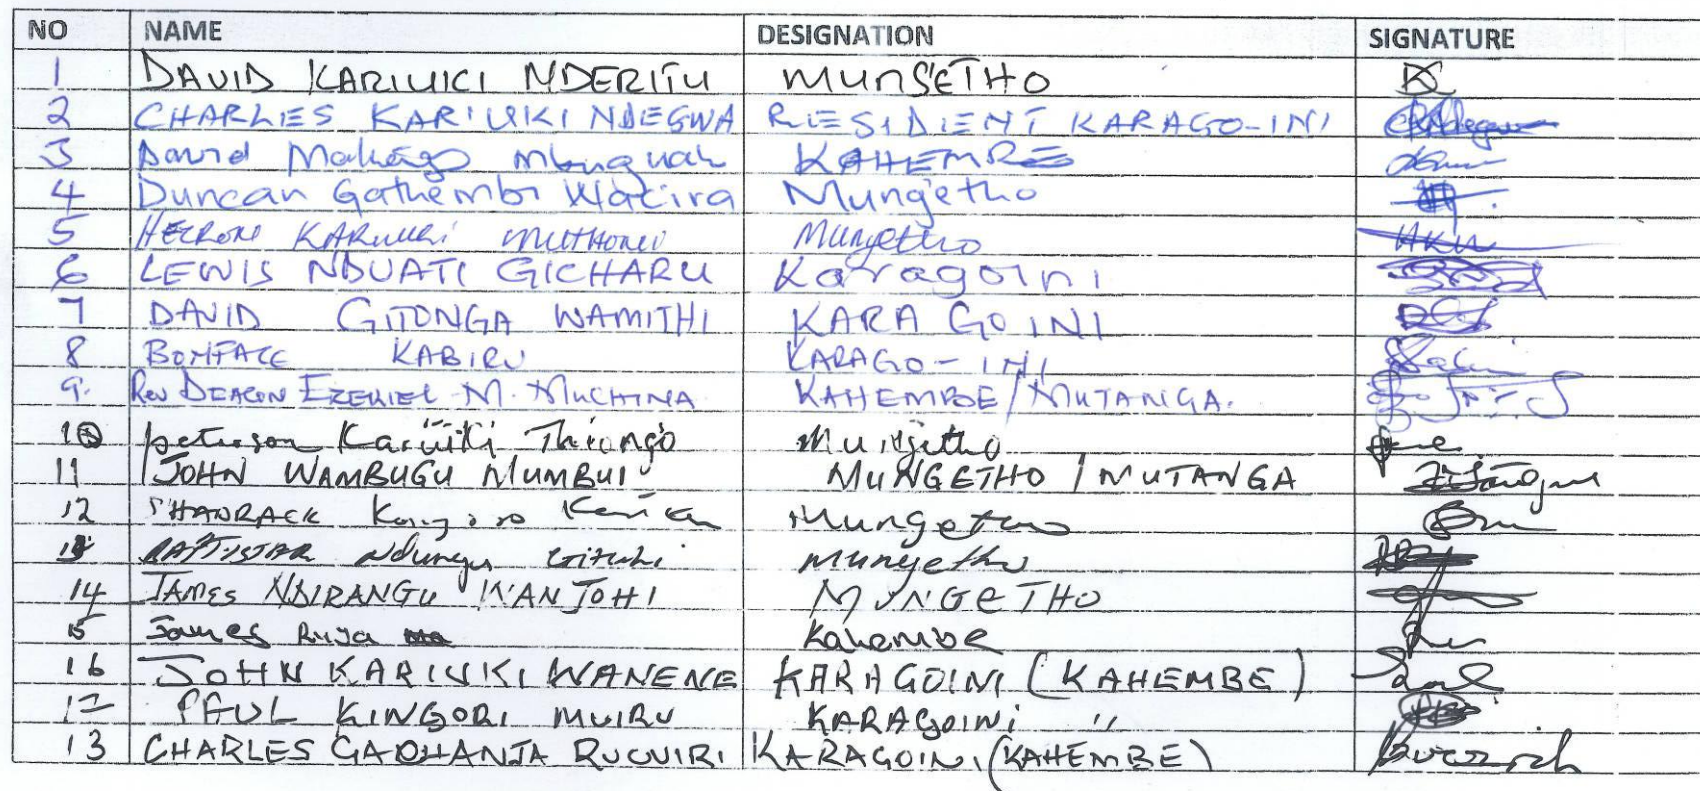 NO NAME DESIGNATION SIGNATURE
1 DAVID KARIUKI NDERITU MUNG'ETHO
2 CHARLES KARIUKI NDEGWA RESIDENT KARAGO-INI
3 David Mbuguah KAHEMBE
4 Duncan Gathembi Wacira Mungetho
5 KARIUKI MUTHONI Mungetho HKM
6 LEWIS NDUATI GICHARU Karagoini
7 DAVID GITONGA WAMITHI KARA GOINI
8 BONIFACE KABIRU KARAGO-INI
9. Rev DEACON EZEKIEL M. MUCHINA KAHEMBE/MUTANGA.
10 peterson Kariuki Thiong'o Mungetho
11 JOHN WAMBUGU MUMBUI MUNGETHO / MUTANGA
12 SHADRACK Mungetho
13 BAPTISTAR Ndungu Gituhi mungetho
14 JAMES NDIRANGU WANJOHI MUNGETHO
15 James Ruga Kahembe
16 JOHN KARIUKI WANENE KARAGOINI (KAHEMBE)
17 PAUL KINGORI MUIRU KARAGOINI "
13 CHARLES KARAGOINI (KAHEMBE)